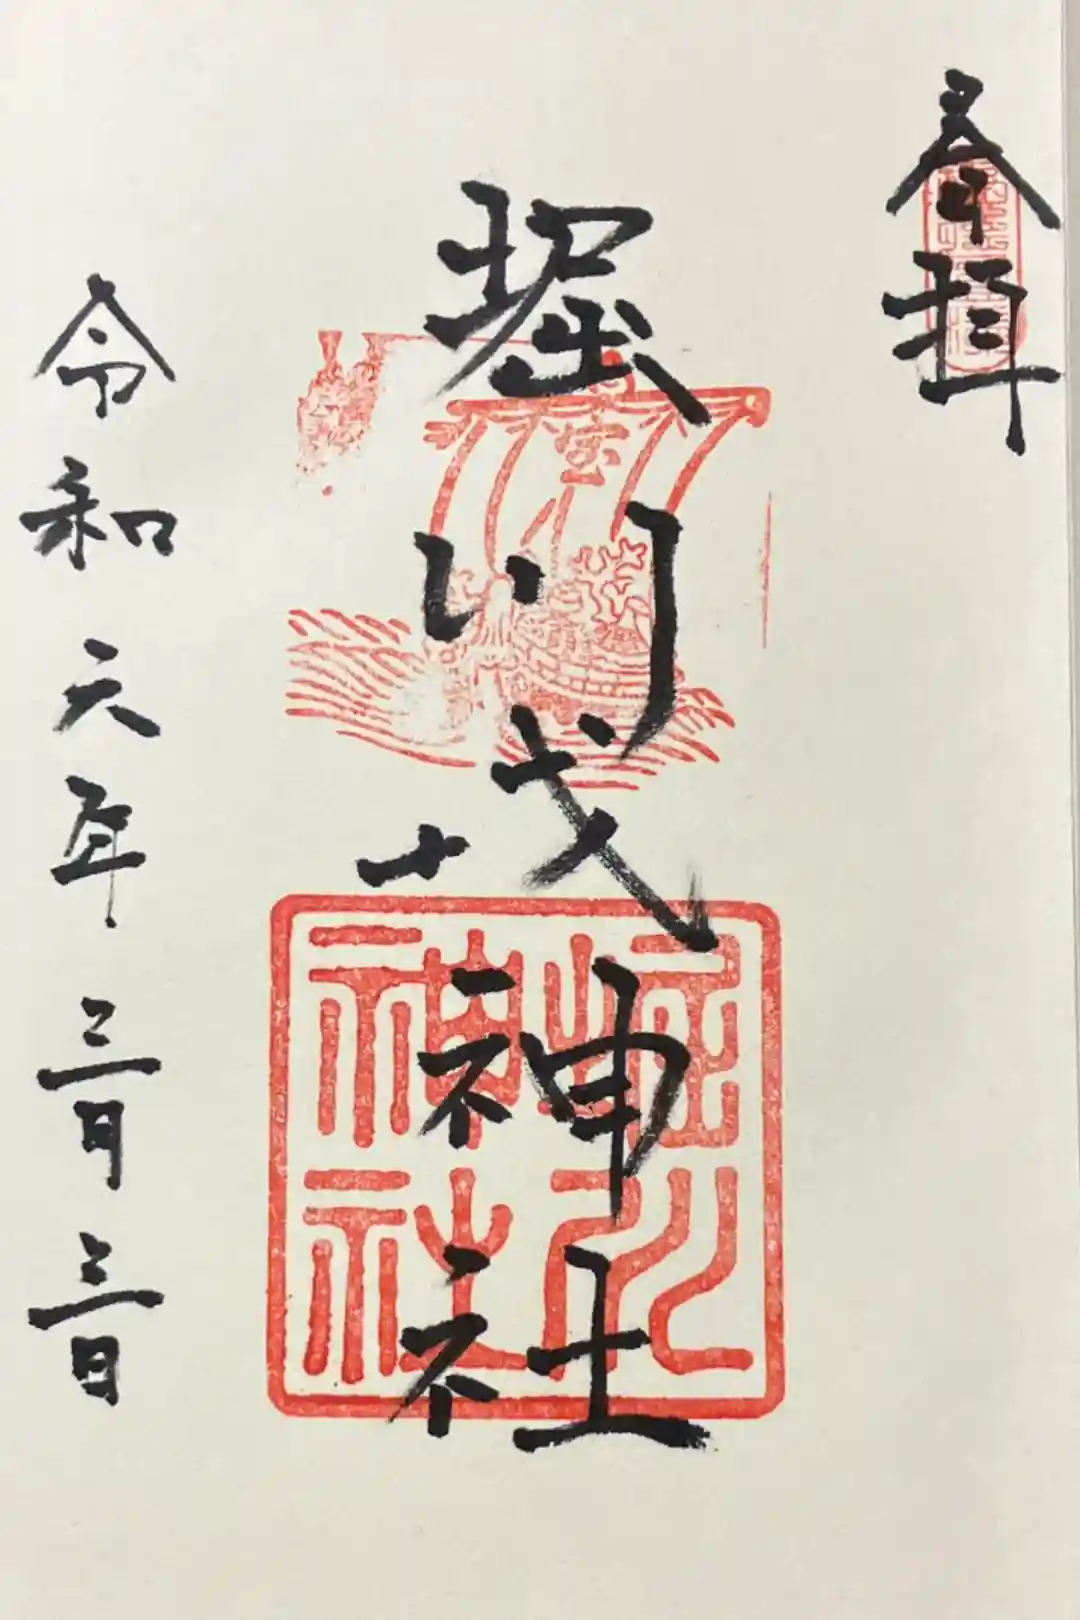 奉拝
堀川戎神社
令和六年三月三日
宝
堀川
神社